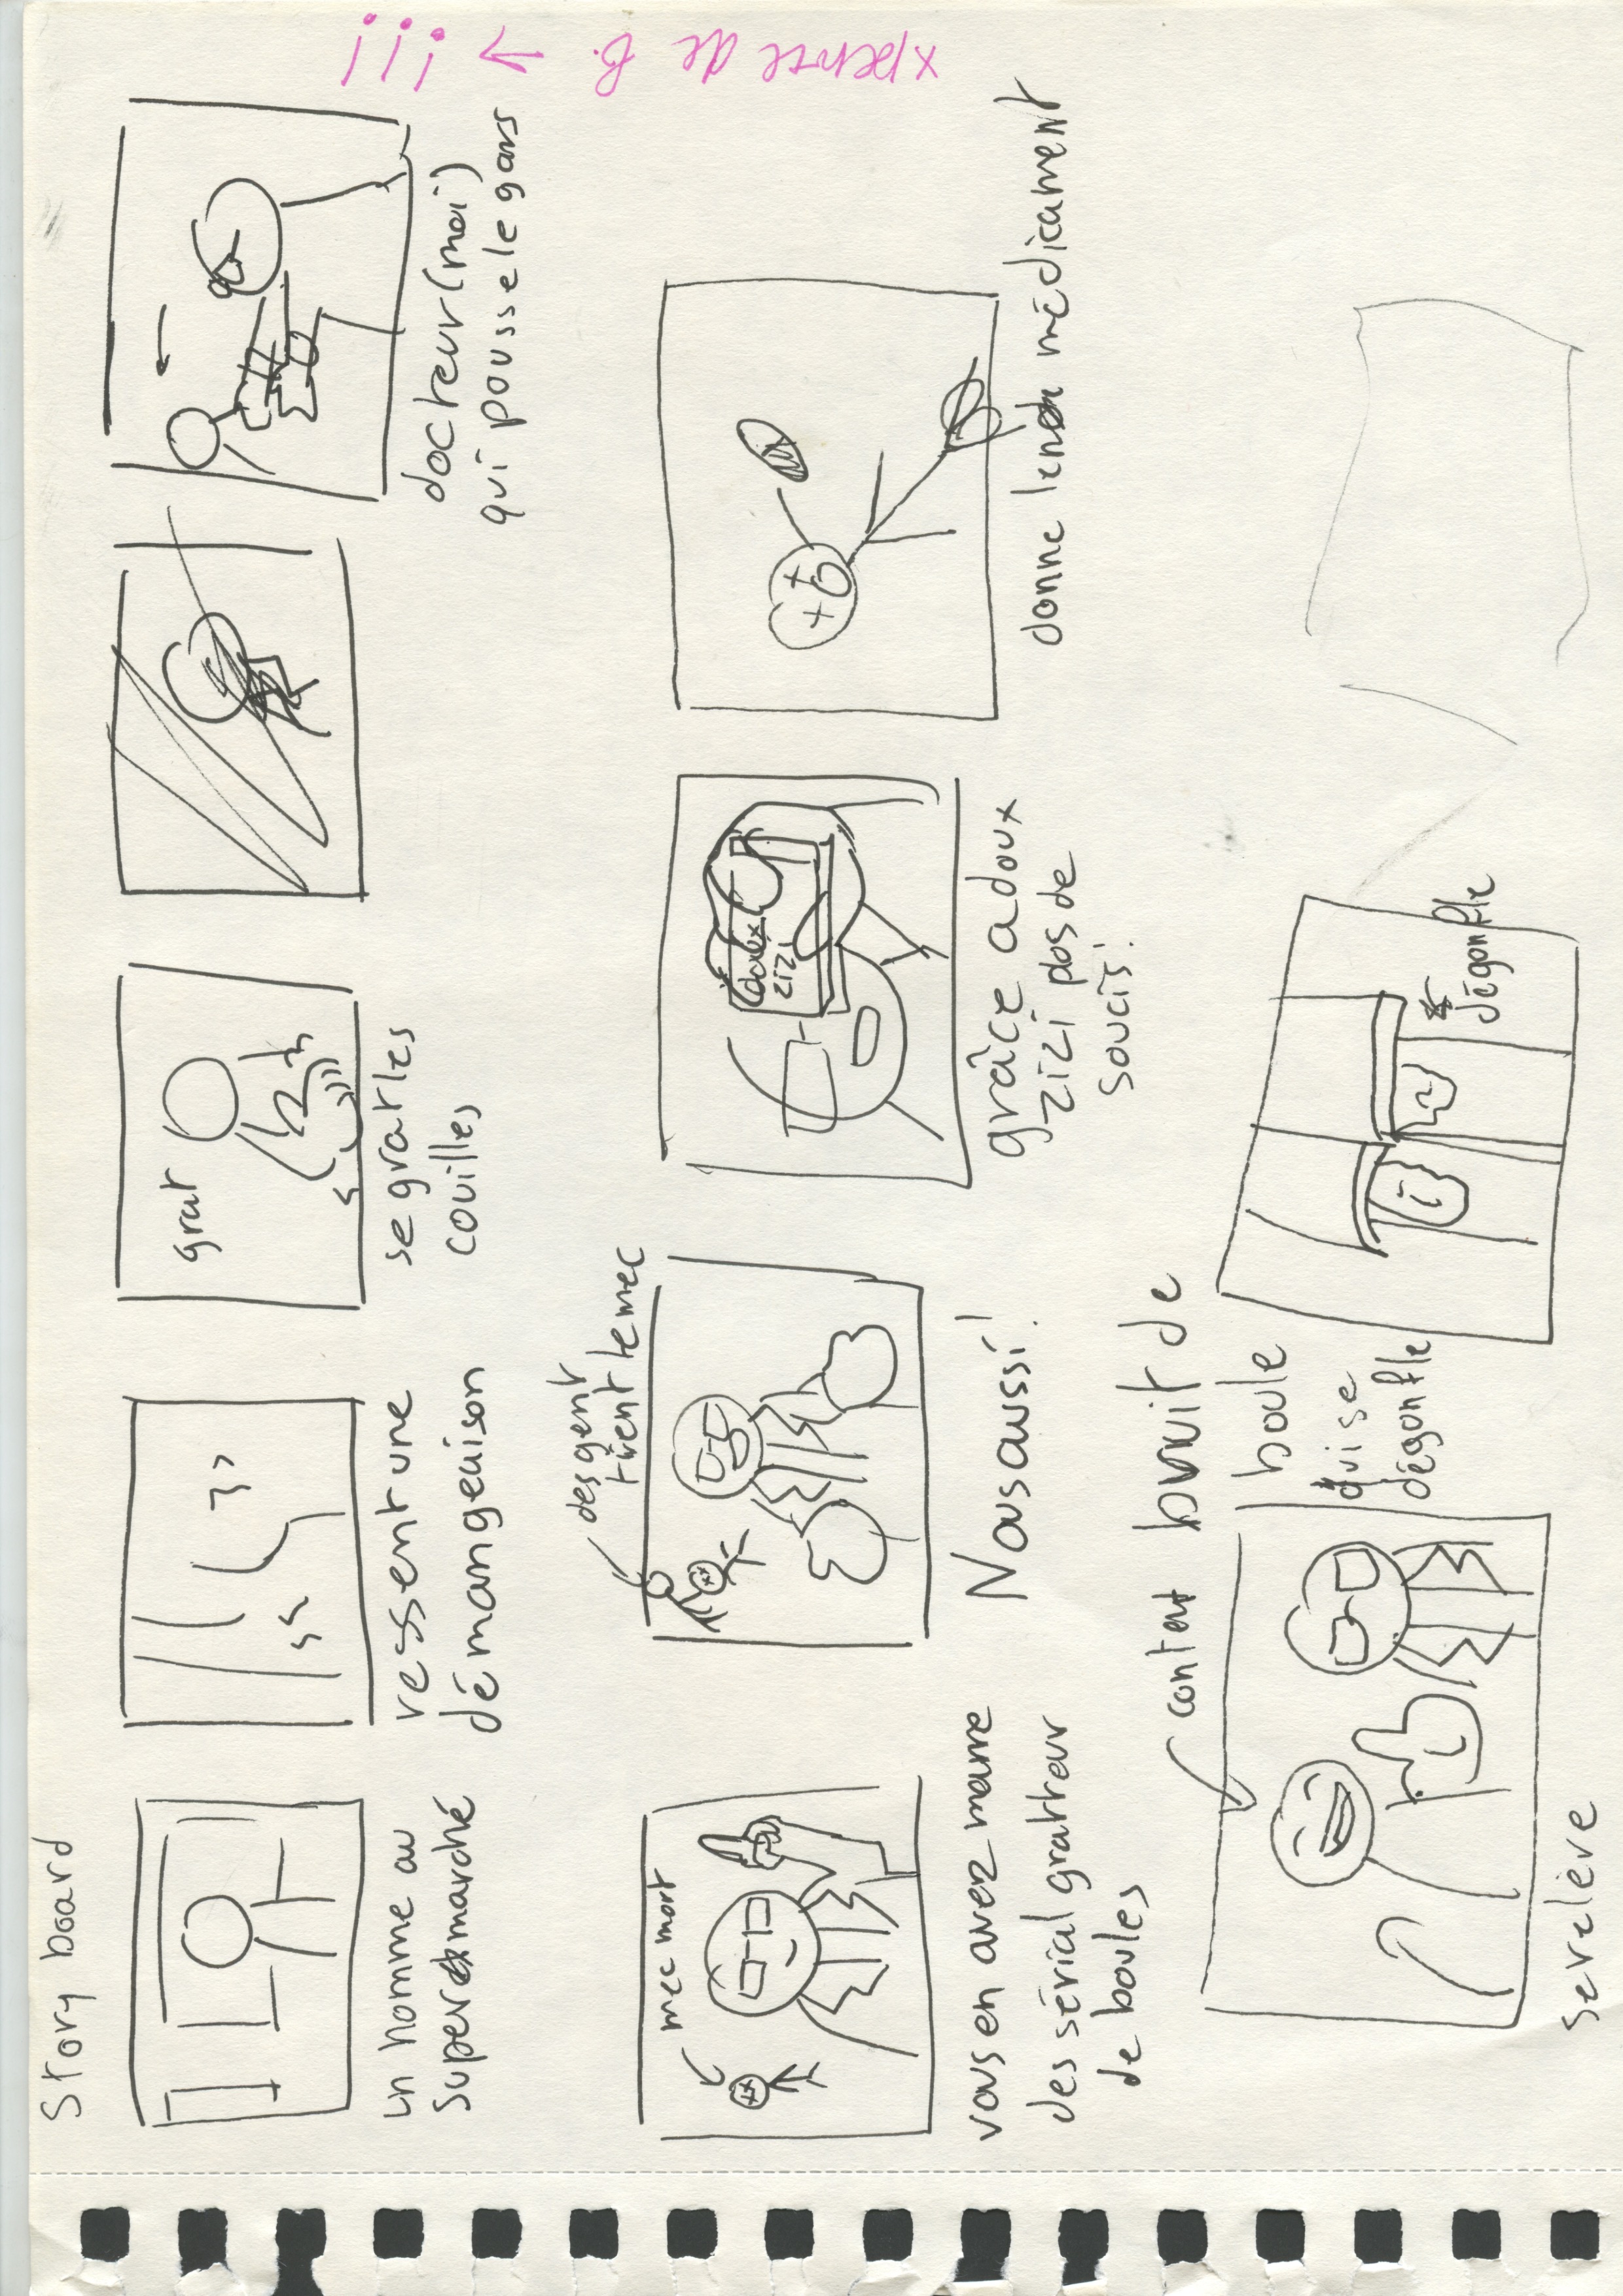 Story board
un homme au
supermarché
ressent une
démangeaison
grat
se grat les
couilles
docteur (moi)
qui pousse le gars
mec mort
vous en avez marre
des sérial gratteur
de boules
des gent
tirent le mec
Nous aussi!
doux
zizi
grâce a doux
zizi pas de
soucis!
donne le médicament
content
se relève
bruit de
boule
qui se
dégonfle
dégonfle
de B. → !!!